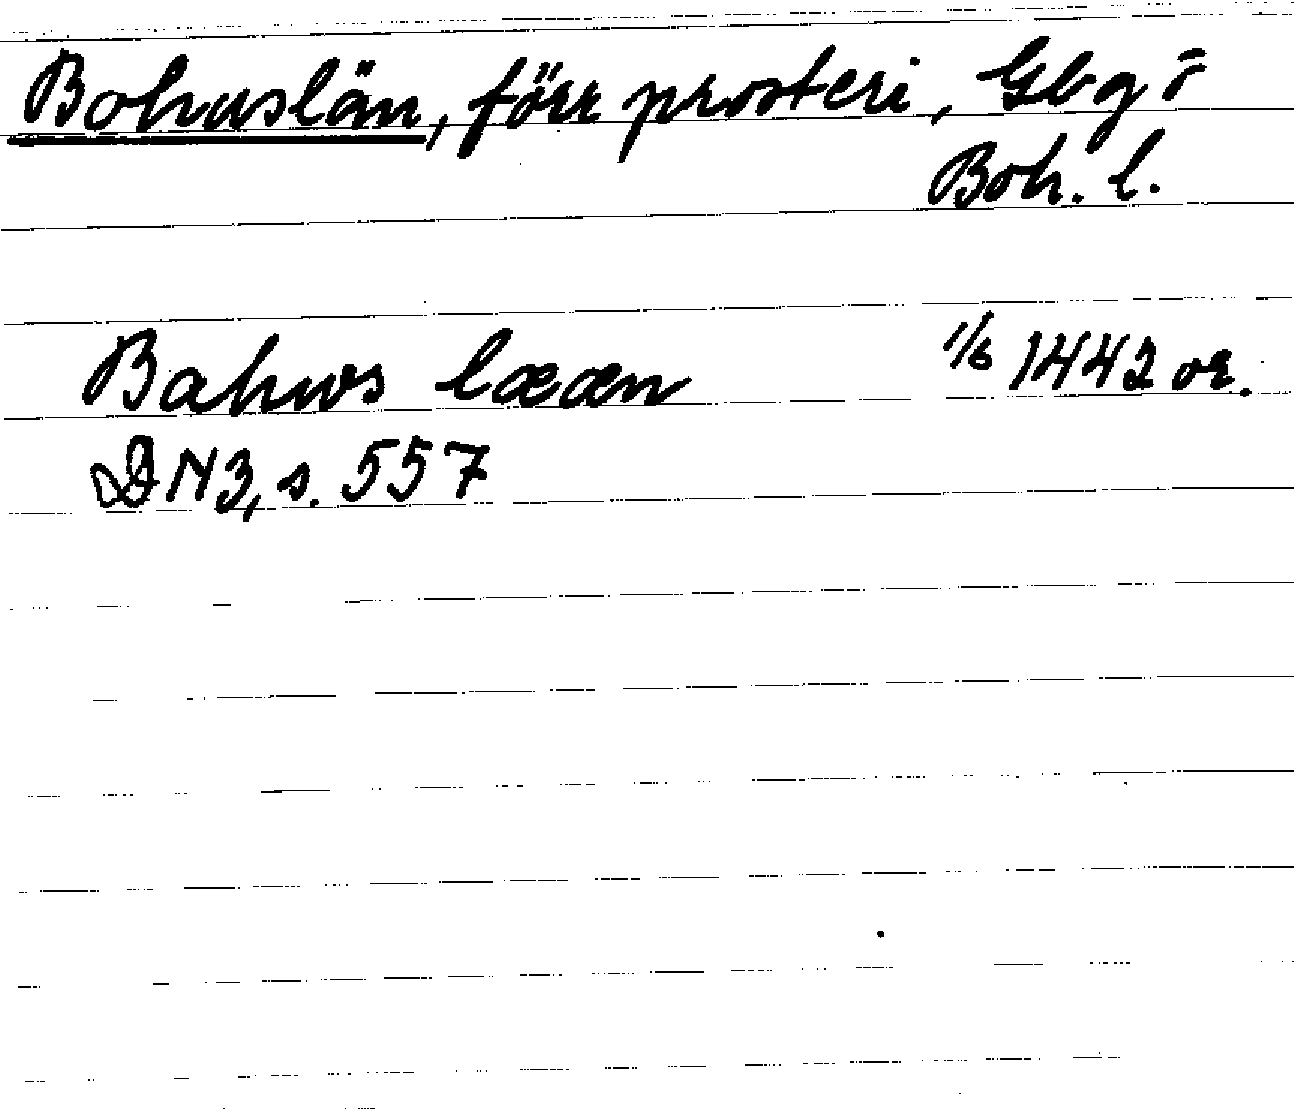 Bohuslän, förr prosteri, Gbg o
Boh. l.
Bahws lææn 1/6 1442 or.
DN 3, s. 557